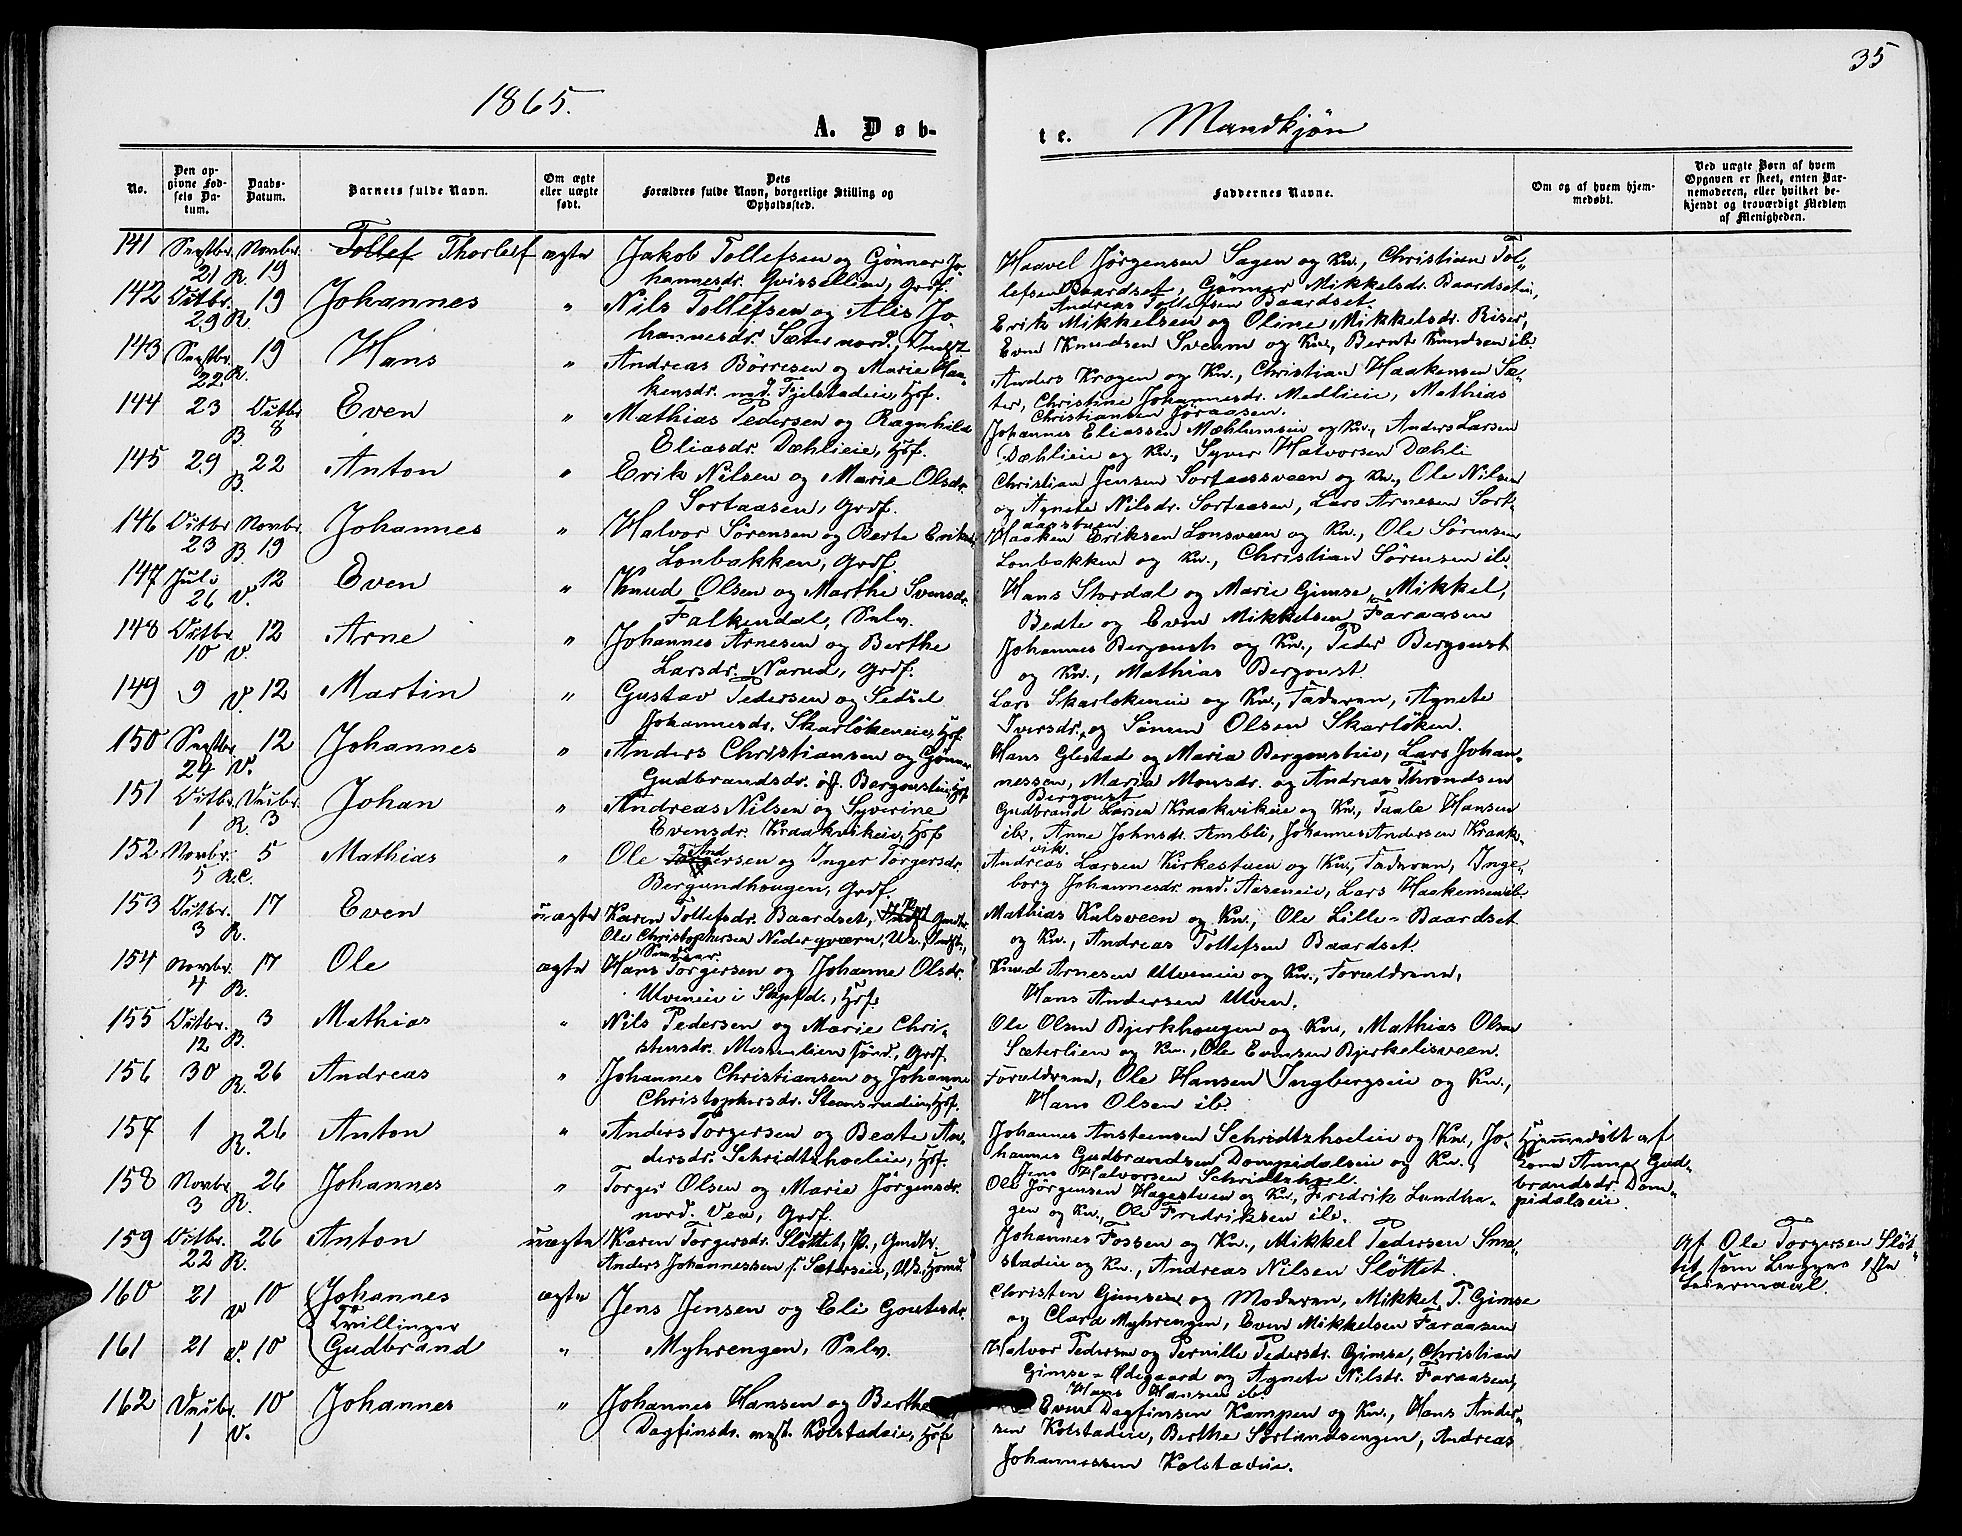 35
1865.
A. Døb-
te. Mandkjøn
No.
Den opgivne Fødsels Datum.
Daabs-Datum.
Barnets fulde Navn.
Om ægte eller uægte født.
Dets Forældres fulde Navn, borgerlige Stilling og Opholdssted.
Faddernes Navne.
Om og af hvem hjemmedøbt.
Ved uægte Børn af hvem Opgaven er skeet, enten Barnemoderen, eller hvilket bekjendt og troværdigt Medlem af Menigheden.
141 Septbr. 21 R. Novbr. 19 Tollef Thorleif ægte Jakob Tollefsen og Gønner Jo-
hannesdr. Qvisellien, Grdf.
Haavel Jørgensen Sagen og Kn., Christian Tol-
lefsen Baardset, Gønner Mikkelsdr. Baardseteie,
Andreas Tollefsen Baardset.
142 Octbr. 29 R. 19 Johannes " Nils Tollefsen og Alis Jo-
hannesdr. Sæter nord., Indst.
Erik Mikkelsen og Oline Mikkelsdr. Riser,
Even Knudsen Sveum og Kn., Bernt Knudsen ib.
143 Septbr. 22 R. 19 Hans " Andreas Børresen og Marie Haa-
kensdr. med. Fjelstadeie, Hsf.
Anders Krogen og Kn., Christian Haakensen Sæ-
ter, Christine Johannesdr. Medlieie, Mathias
Christiansen Jøraasen.
144 23 B. Octbr. 8 Even " Mathias Pedersen og Ragnhild
Eliasdr. Dæhlieie, Hsf.
Johannes Eliassen Mæhlumseie og Kn., Anders Larsen
Dæhlieie og Kn., Syver Halvorsen Dæhli
145 29 B. 22 Anton " Erik Nilsen og Marie Olsdr.
Sortaasen, Grdf.
Christian Jensen Sortaassveen og Kn., Ole Nilsen
og Agnete Nilsdr. Sortaasen, Lars Arnesen Sort-
aasstuen
146 Octbr. 23 B. Novbr. 19 Johannes " Halvor Sørensen og Berte Eriksdr.
Lonbakken, Grdf.
Haaken Eriksen Lonsveen og Kn., Ole Sørensen
Lonbakken og Kn., Christian Sørensen ib.
147 Juli 26 V. 12 Even " Knud Olsen og Marthe Svensdr.
Falkendal, Selv.
Hans Stordal og Marie Gimse, Mikkel,
Beate og Even Mikkelsen Faraasen
148 Octbr. 10 V. 12 Arne " Johannes Arnesen og Berthe
Larsdr. Narud, Grdf.
Johannes Bergoust og Kn., Peder Bergoust
og Kn., Mathias Bergoust.
149 9 V. 12 Martin " Gustav Pedersen og Sedsel
Johannesdr. Skarløkeneie, Hsf.
Lars Skarløkeneie og Kn., Faderen, Agnete
Iversdr. og Simen Olsen Skarløken.
150 Septbr. 24 V. 12 Johannes " Anders Christiansen og Gønner
Gudbrandsdr. øf. Bergousteie, Hsf.
Hans Glestad og Maria Bergousteie, Lars Johan-
nessen, Marie Monsdr. og Andreas Throndsen
Bergoust
151 Octbr. 1 R. Decbr. 3 Johan " Andreas Nilsen og Syverine
Evensdr. Kraakvikeie, Hsf.
Gudbrand Larsen Kraakvikeie og Kn., Paale Hansen
ib., Anne Johnsdr. Ambli, Johannes Andersen Kraak-
vik.
152 Novbr. 5 R.C. 5 Mathias " Ole Torgersen og Inger Torgersdr.
Bergundhaugen, Grdf.
Andreas Larsen Kirkestuen og Kn., Faderen, Inge-
borg Johannesdr. med. Aaseneie, Lars Haakensen ib.
153 Octbr. 3 R. 17 Even uægte Karen Tollefsdr. Baardset, Grdbr.
Ole Christophersen Nederqværn, Uk., Indst.
Mathias Kulsveen og Kn., Ole Lille-Baardset
og Kn., Andreas Tollefsen Baardset.
154 Novbr. 4 R. 17 Ole ægte Hans Torgersen og Johanne Olsdr.
Ulveneie i Skjefld., Hsf.
Knud Arnesen Ulveneie og Kn., Forældrene,
Hans Andersen Ulven.
155 Octbr. 12 B. 3 Mathias " Nils Pedersen og Marie Chri-
stensdr. Messenlien sønd., Grdf.
Ole Olsen Bjerkhougen og Kn., Mathias Olsen
Sæterlien og Kn., Ole Evensen Bjerkelisveen.
156 30 R. 26 Andreas " Johannes Christiansen og Johanne
Christophersdr. Steensrudeie, Hsf.
Forældrene, Ole Hansen Ingbergseie og Kn.,
Hans Olsen ib.
157 1 R. 26 Anton " Anders Torgersen og Beate An-
dersdr. Schridtzhoeleie, Hsf.
Johannes Ansteensen Schridtzhoeleie og Kn., Jo-
hannes Gudbrandsen Dompidalseie og Kn.,
Jens Halvorsen Schridtzhol.
Hjemmedøbt af
Kone Anne Gud-
brandsdr. Dom-
pidalseie.
158 Novbr. 3 R. 26 Johannes " Torger Olsen og Marie Jørgensdr.
nord. Vea, Grdf.
Ole Jørgensen Hagestuen og Kn., Fredrik Lundha-
gen og Kn., Ole Fredriksen ib.
159 Octbr. 22 R. 26 Anton uægte Karen Torgersdr. Sløttet, P., Gmdtr.
Anders Johannessen s. Sæterseie, Uk., Husmd.
Johannes Fossen og Kn., Mikkel Pedersen Sme-
stadeie og Kn., Andreas Nilsen Sløttet.
Af Ole Torgersen Sløt-
tet som begges 1ste
Leiermaal.
160 21 V. 10 Johannes ægte Jens Jensen og Eli Goutesdr.
Christen Gimse og Moderen, Mikkel P. Gimse
og Clara Myhrengen, Even Mikkelsen Faraasen
Tvillinger
161 21 V. 10 Gudbrand " Myhrengen, Selv.
Halvor Pedersen og Pernille Pedersdr. Gimse, Christian
Gimse-Ødegaard og Agnete Nilsdr. Faraasen,
Hans Hansen ib.
162 Decbr. 1 V. 10 Johannes " Johannes Hansen og Berthe
Dagfinsdr. mst. Kolstadeie, Hsf.
Even Dagfinsen Kampen og Kn., Hans Ander-
sen Kolstadeie, Berthe Sørlundsengen, Andreas
Johannessen Kolstadeie.